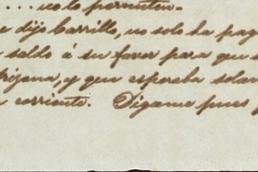 ... no lo permiten.
dijo Carrillo, no solo ha pag
saldo á su favor para que s
y que esperaba solam
corriente. Digame pues